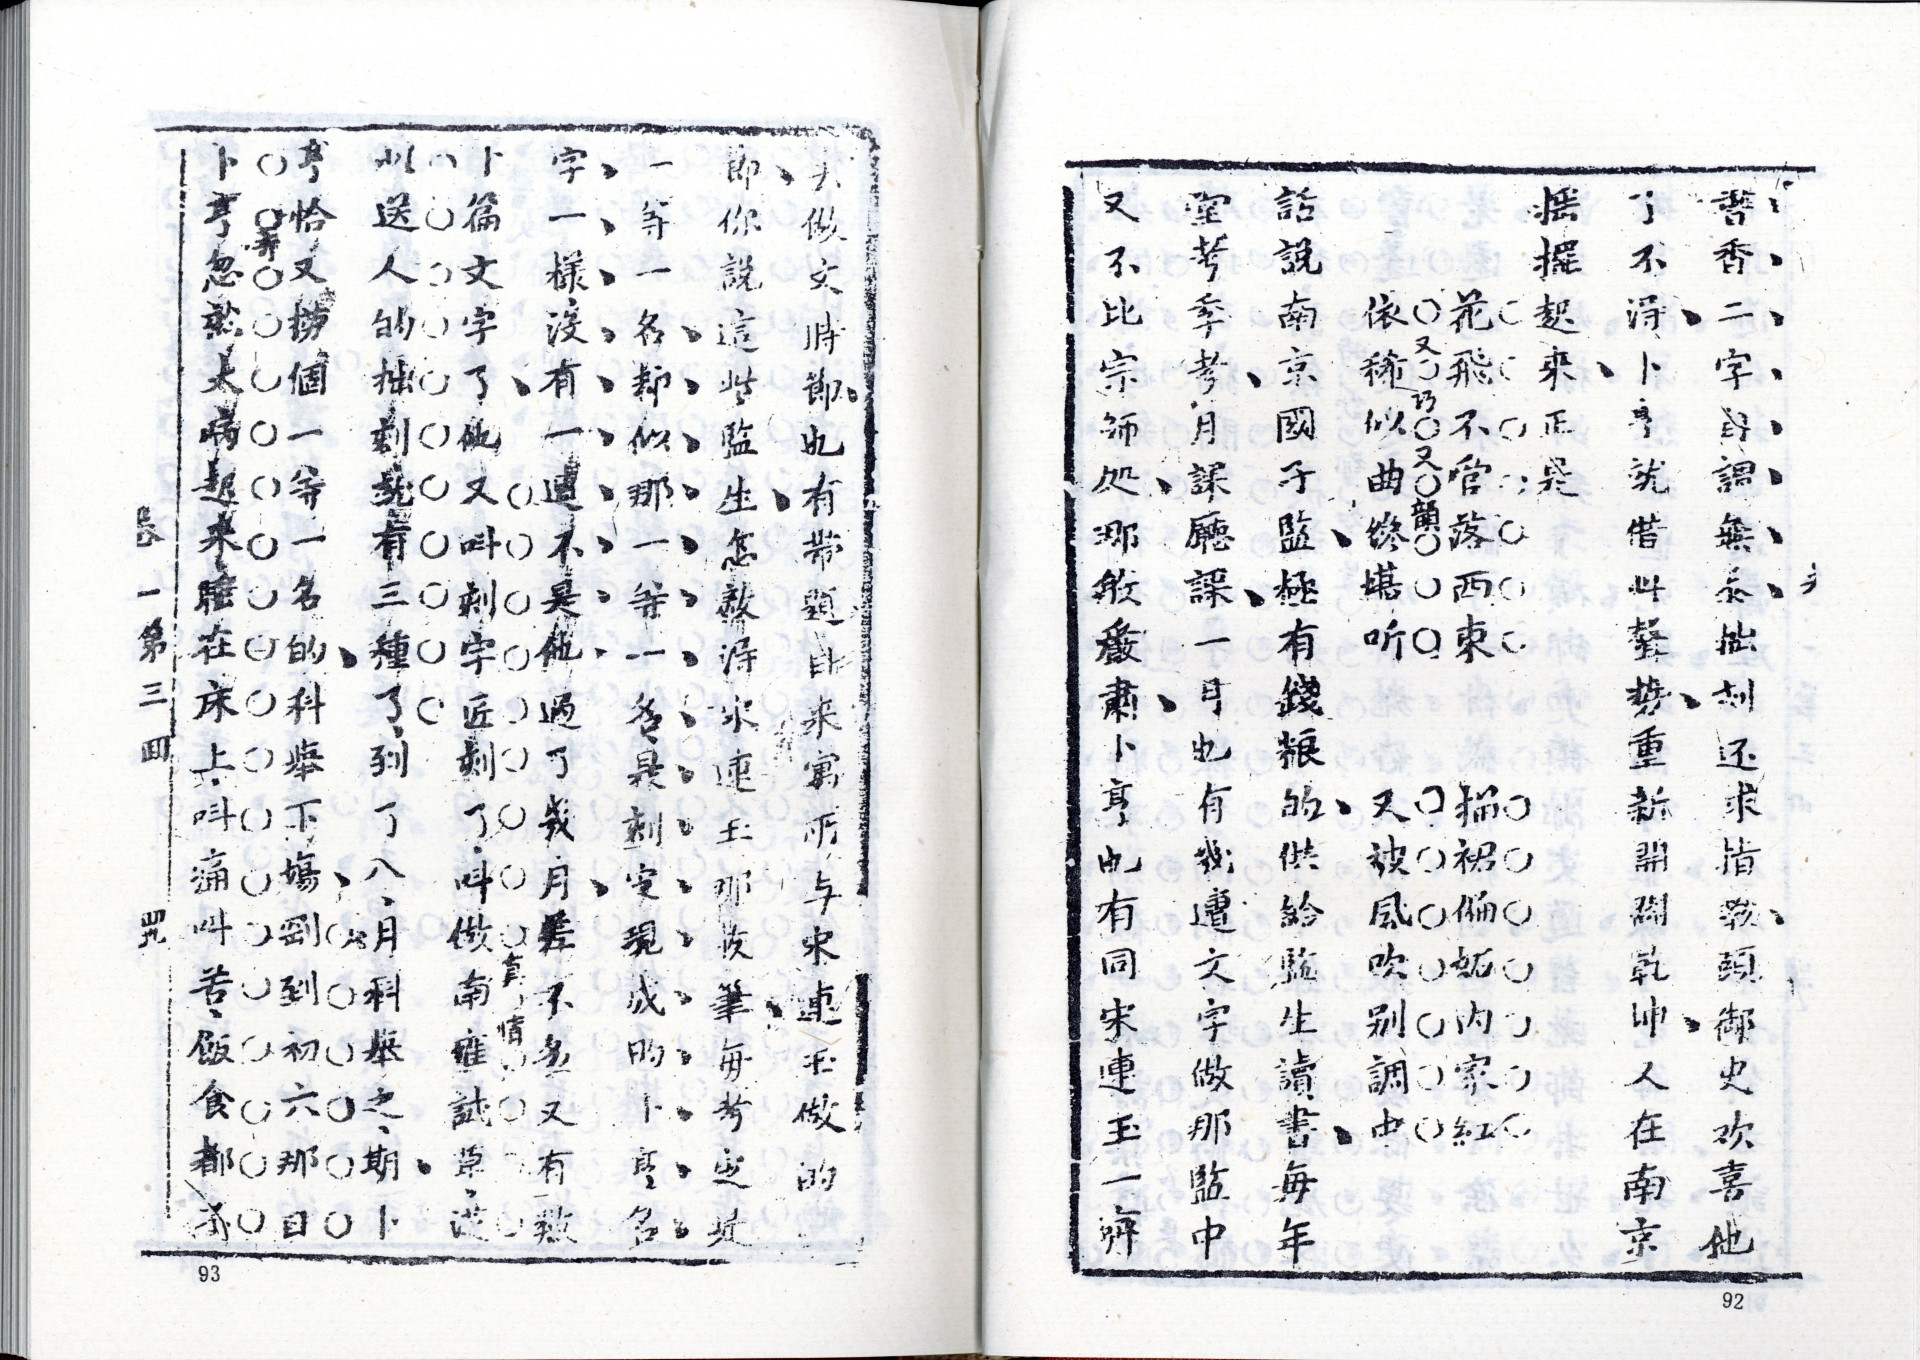 書香二字自謂無忝拙刻还求指敎頭御史欢喜他
了不淂卜亨就借此聲势重新開闢乾坤人在南京
摇擺起來正是
花飛不管落西東　揣裙偏妬内家紅
依稀似曲终堪听　又被风吹别調中
又　巧　又　韻
話説南京國子監極有錢粮的供給監生讀書每年
聖考季考月課廳課一月也有幾遭文字做那監中
又不比宗師处那般嚴肅卜亨也有同宋連玉一齊
去做文時節也有帶題目來寓所与宋連玉做的
即你説這些監生怎敵淂宋連玉那枝筆每考定是
一等一名都似那一等一名是刻定現成的卜亨名
字一樣沒有一遭不是他過了幾月差不多又有数
十篇文字了他又叫刻字匠刻了叫做南雍試草
真情
以送人的拙刻就有三種了到了八月科舉之期卜
亨恰又撈個一等一名的科舉下塲剛到初六那日
奔
卜亨忽然大病起来睡在床上叫痛叫苦飯食都
卷一第三回
四九
92
93